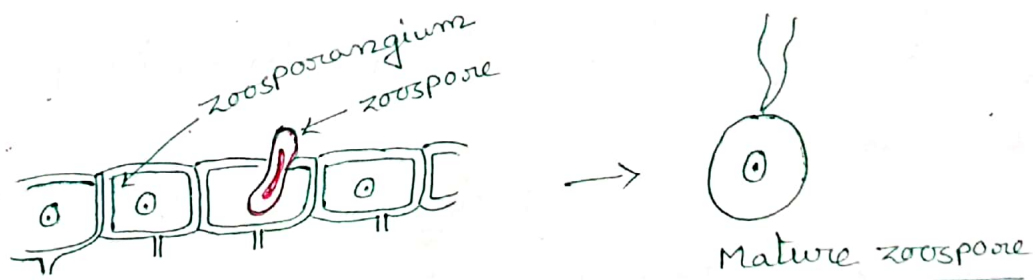 zoosporangium
zoospore
Mature zoospore